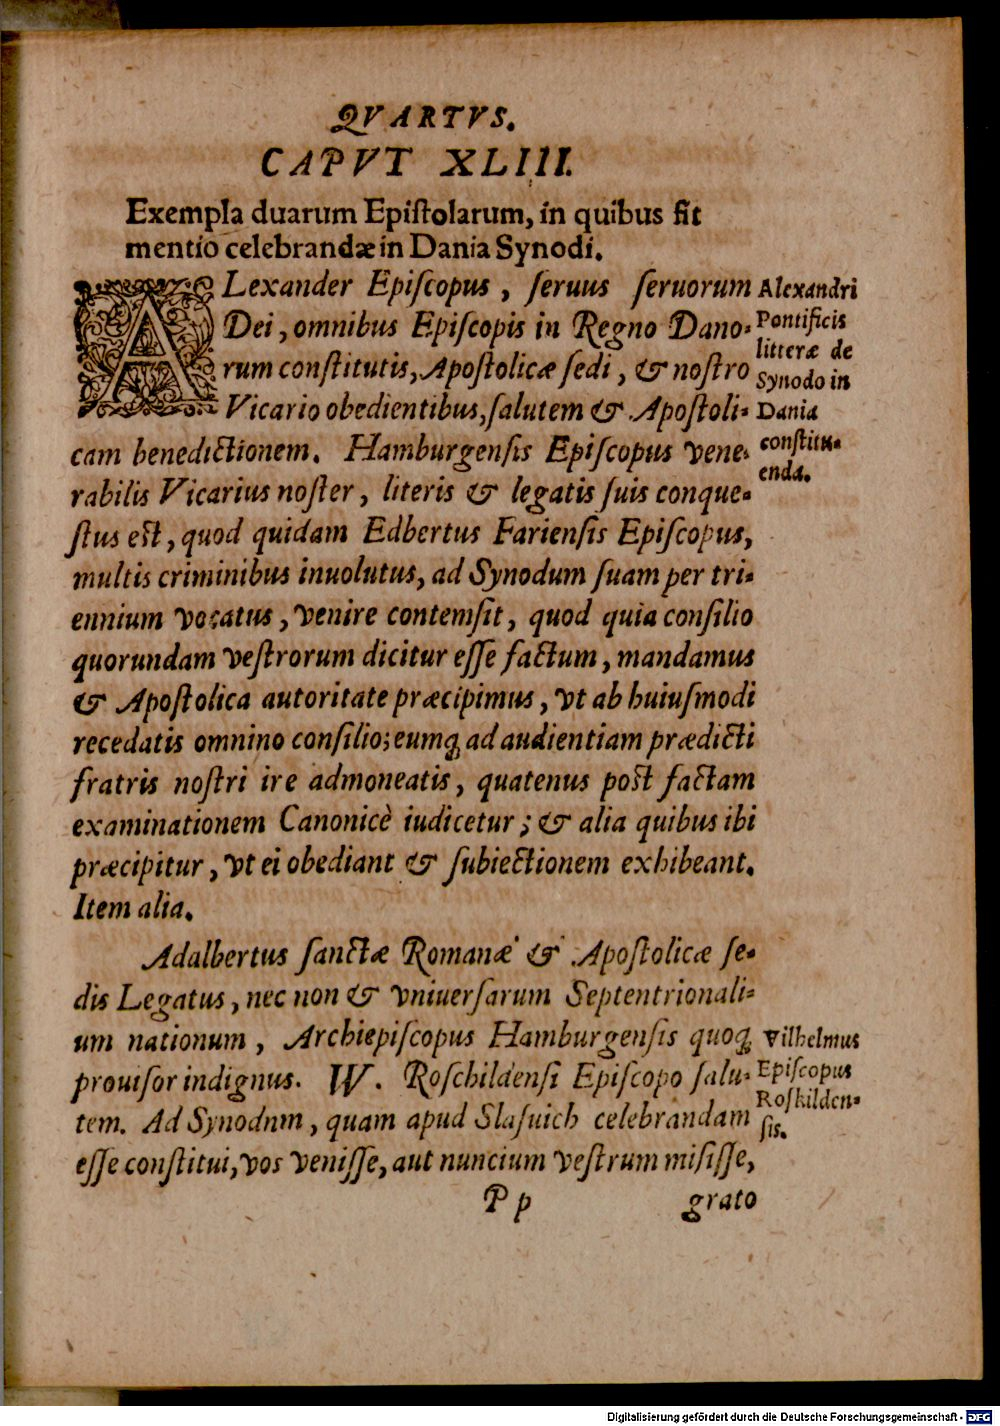 QVARTVS.
CAPVT XLIII.
Exempla duarum Epiſtolarum, in quibus fit
mentio celebrandæ in Dania Synodi.
ALexander Epiſcopus, ſeruus ſeruorum
Dei, omnibus Epiſcopis in Regno Dano-
rum conſtitutis, Apoſtolicæ ſedi, & noſtro
Vicario obedientibus, ſalutem & Apoſtoli-
cam benedictionem. Hamburgenſis Epiſcopus vene-
rabilis Vicarius noſter, literis & legatis ſuis conque-
ſtus eſt, quod quidam Edbertus Farienſis Epiſcopus,
multis criminibus inuolutus, ad Synodum ſuam per tri-
ennium vocatus, venire contemſit, quod quia conſilio
quorundam veſtrorum dicitur eſſe factum, mandamus
& Apoſtolica autoritate præcipimus, vt ab huiuſmodi
recedatis omnino conſilio; eumq; ad audientiam prædicti
fratris noſtri ire admoneatis, quatenus poſt factam
examinationem Canonicè iudicetur; & alia quibus ibi
præcipitur, vt ei obediant & ſubiectionem exhibeant.
Item alia.
Adalbertus ſanctæ Romanæ & Apoſtolicæ ſe-
dis Legatus, nec non & vniuerſarum Septentrionali-
um nationum, Archiepiſcopus Hamburgenſis quoq;
prouiſor indignus. W. Roſchildenſi Epiſcopo ſalu-
tem. Ad Synodnm, quam apud Slaſuich celebrandam
eſſe conſtitui, vos veniſſe, aut nuncium veſtrum miſiſſe,
P p
grato
Alexandri
Pontificis
litteræ de
Synodo in
Dania
conſtitu-
enda.
Vilhelmus
Epiſcopus
Roſkilden-
ſis.
Digitalisierung gefördert durch die Deutsche Forschungsgemeinschaft - DFG